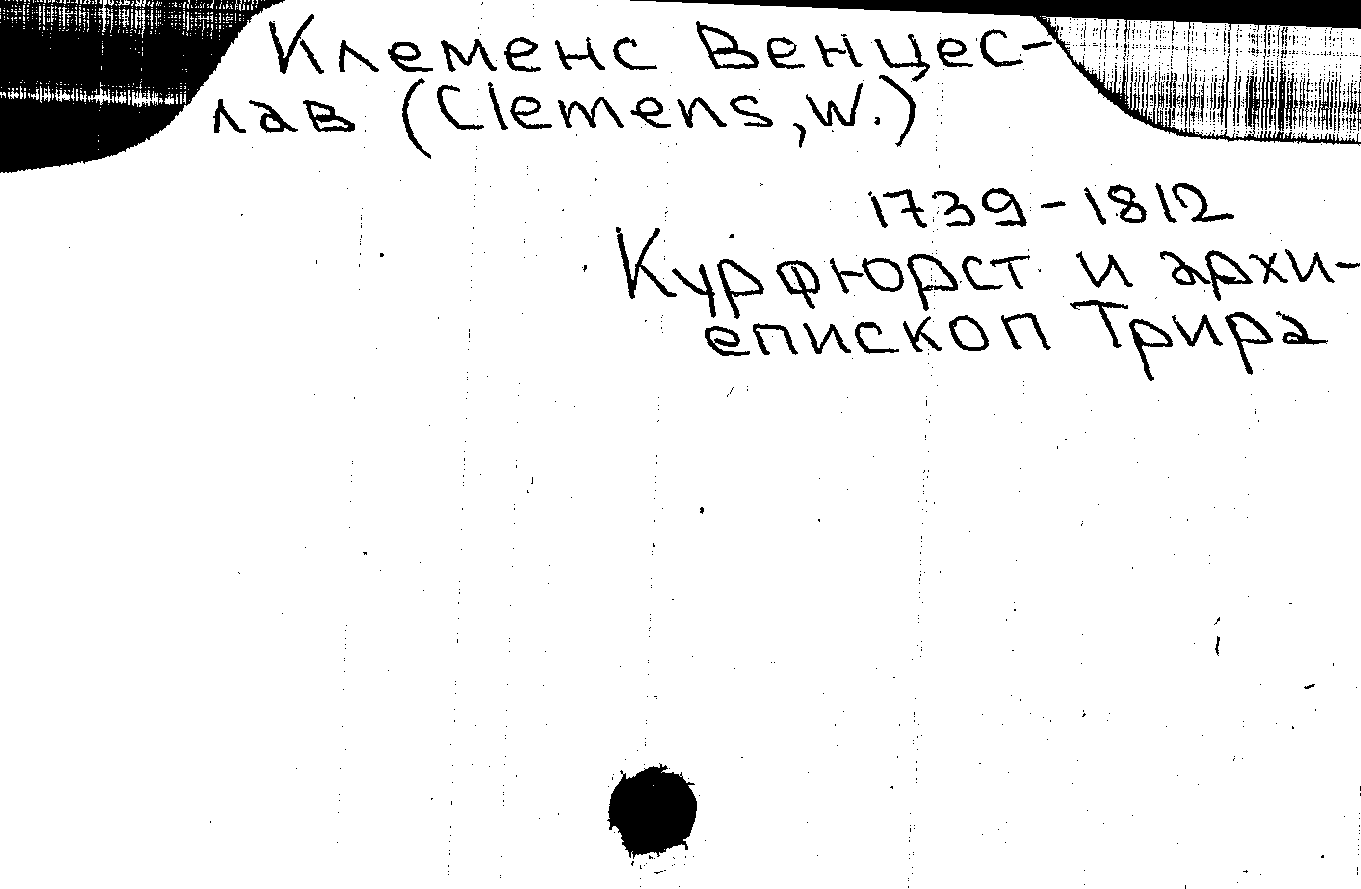 Клеменс Венцес-
лав (Clemens, W.)
1739-1812
Курфюрст и архи-
епископ Трира